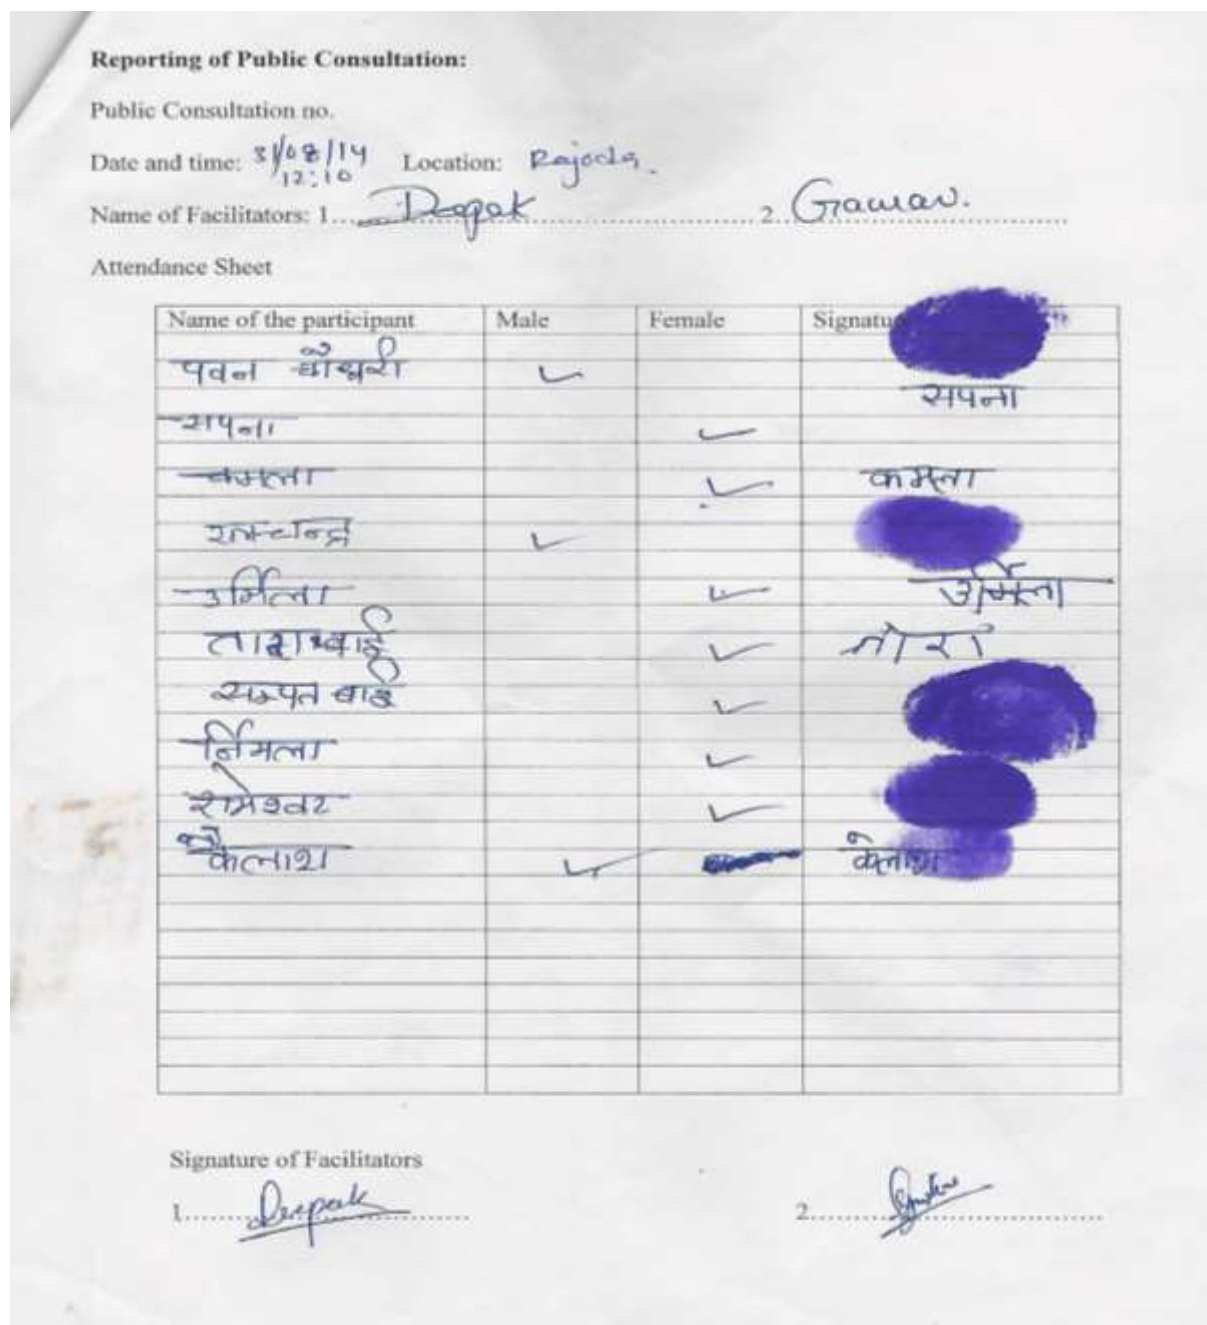 Reporting of Public Consultation:
Public Consultation no.
Date and time: 31/08/14 12:10 Location: Rajoda.
Name of Facilitators: 1. Deepak 2 Gaurav.
Attendance Sheet
Name of the participant Male Female Signatu
पवन चौधरी ✓
सपना ✓ सपना
कमला ✓ कमला
रामचन्द्र ✓
उर्मिला ✓ उर्मिला
ताराबाई ✓ तारा
सम्पत बाई ✓
र्निमला ✓
रामेश्वर ✓
कैलाश ✓ केलाश
Signature of Facilitators
1. Deepak 2.